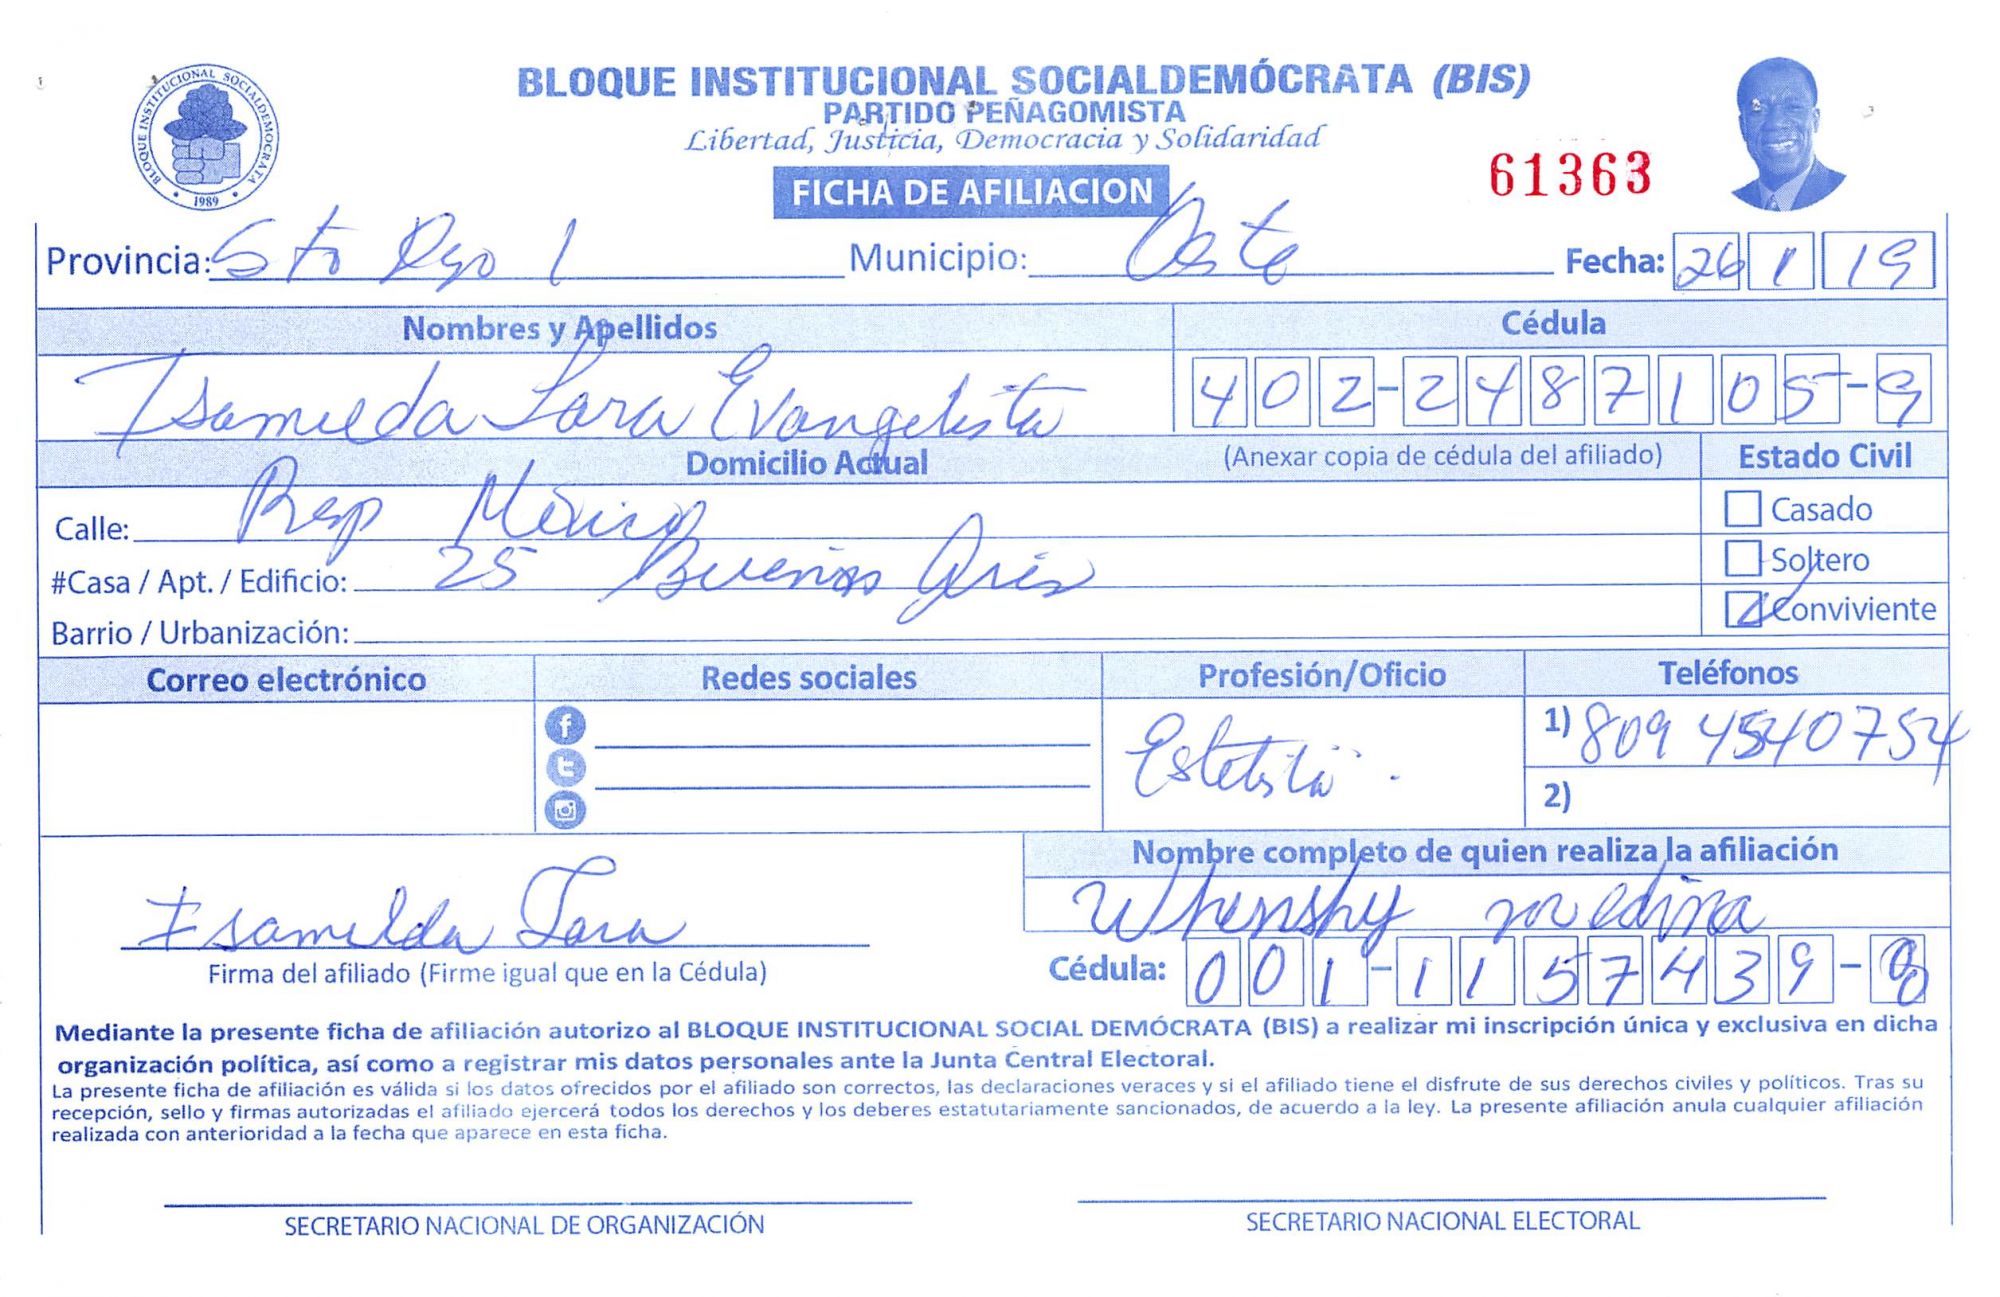 BLOQUE INSTITUCIONAL SOCIALDEMÓCRATA (BIS)
PARTIDO PEÑAGOMISTA
Libertad, Justicia, Democracia y Solidaridad
BLOQUE INSTITUCIONAL SOCIALDEMOCRATA
1989
61363
FICHA DE AFILIACION
Provincia: Sto Dgo Municipio: Oeste Fecha: 26 1 19
Nombres y Apellidos Cédula
Isamelda Lara Evangelista 402-2487105-9
Domicilio Actual (Anexar copia de cédula del afiliado) Estado Civil
Calle: Rep México Casado
#Casa / Apt. / Edificio: 25 Buenos Aires Soltero
Barrio / Urbanización: Conviviente
Correo electrónico Redes sociales Profesión/Oficio Teléfonos
Estetista 1) 809 4540754
2)
Nombre completo de quien realiza la afiliación
Isamelda Lara Whenshy medina
Firma del afiliado (Firme igual que en la Cédula) Cédula: 001-1157439-
Mediante la presente ficha de afiliación autorizo al BLOQUE INSTITUCIONAL SOCIAL DEMÓCRATA (BIS) a realizar mi inscripción única y exclusiva en dicha
organización política, así como a registrar mis datos personales ante la Junta Central Electoral.
La presente ficha de afiliación es válida si los datos ofrecidos por el afiliado son correctos, las declaraciones veraces y si el afiliado tiene el disfrute de sus derechos civiles y políticos. Tras su
recepción, sello y firmas autorizadas el afiliado ejercerá todos los derechos y los deberes estatutariamente sancionados, de acuerdo a la ley. La presente afiliación anula cualquier afiliación
realizada con anterioridad a la fecha que aparece en esta ficha.
SECRETARIO NACIONAL DE ORGANIZACIÓN SECRETARIO NACIONAL ELECTORAL